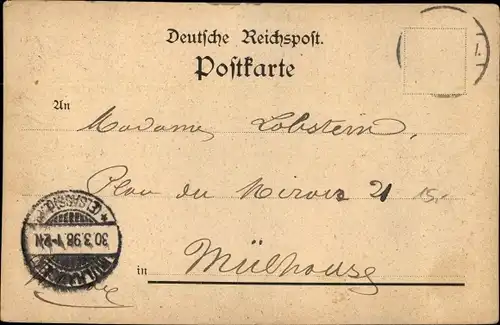 Deutsche Reichspost.
Postkarte
An
Madame Lobstein,
Plan du Miroir 21 15,-
in Mülhouse
(ELSASS)
30.3.98.1-2N